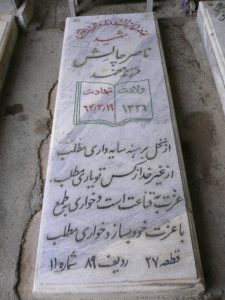 شهید
ناصر چالش
فرزند محمد
ولادت شهادت
۱۳۳۴ ۶۳/۳/۱۹
از نخل برهنه سایه داری مطلب
از غیر خدا ز کس تو یاری مطلب
عزت ز قناعت است و خواری ز طمع
با عزت خود بساز و خواری مطلب
قطعه ۲۷ ردیف ۸۹ شماره ۱۱